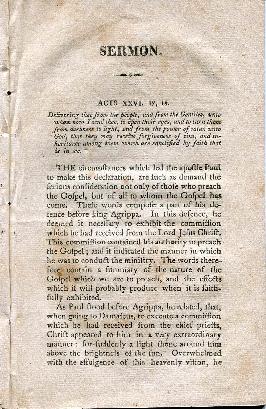 SERMON.
ACTS XXVI. 17, 18.
Delivering thee from the people, and from the Gentiles, unto
whom now I send thee, to open their eyes, and to turn them
from darkness to light, and from the power of satan unto
God, that they may receive forgiveness of sins, and in-
heritance among them which are sanctified by faith that
is in me.
THE circumstances which led the apostle Paul
to make this declaration, are such as demand the
serious consideration not only of those who preach
the Gospel, but of all to whom the Gospel has
come. These words compose a part of his de-
fence before king Agrippa. In this defence, he
deemed it necessary to exhibit the commission
which he had received from the Lord Jesus Christ.
This commission contained his authority to preach
the Gospel; and it indicated the manner in which
he was to conduct the ministry. The words there-
fore contain a summary of the nature of the
Gospel which we are to preach, and the effects
which it will probably produce when it is faith-
fully exhibited.
As Paul stood before Agrippa, he stated, that,
when going to Damascus, to execute a commission
which he had received from the chief priests,
Christ appeared to him in a very extraordinary
manner: for suddenly a light shone around him
above the brightness of the sun. Overwhelmed
with the effulgence of this heavenly vision, he